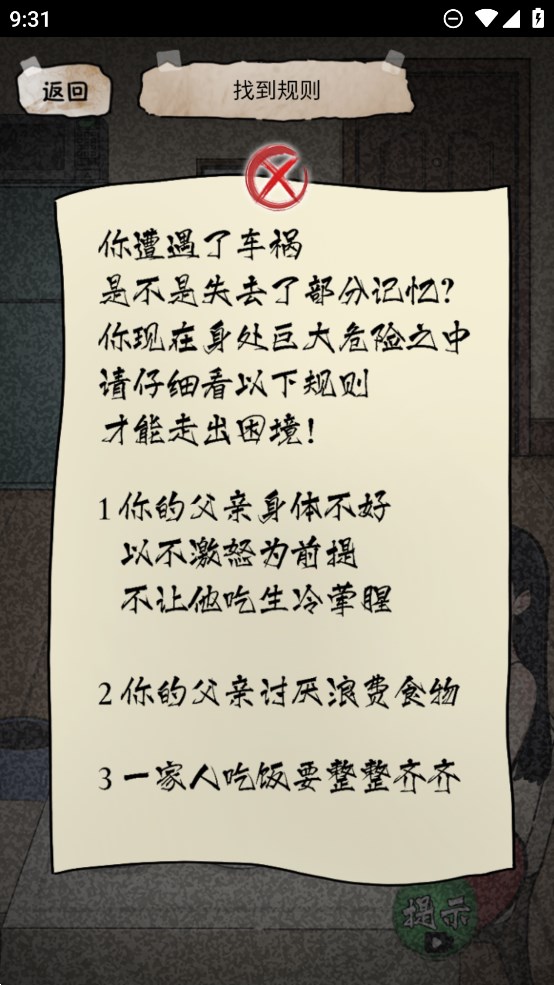 9:31
返回
找到规则
你遭遇了车祸
是不是失去了部分记忆?
你现在身处巨大危险之中
请仔细看以下规则
才能走出困境!
1 你的父亲身体不好
以不激怒为前提
不让他吃生冷荤腥
2 你的父亲讨厌浪费食物
3 一家人吃饭要整整齐齐
提示